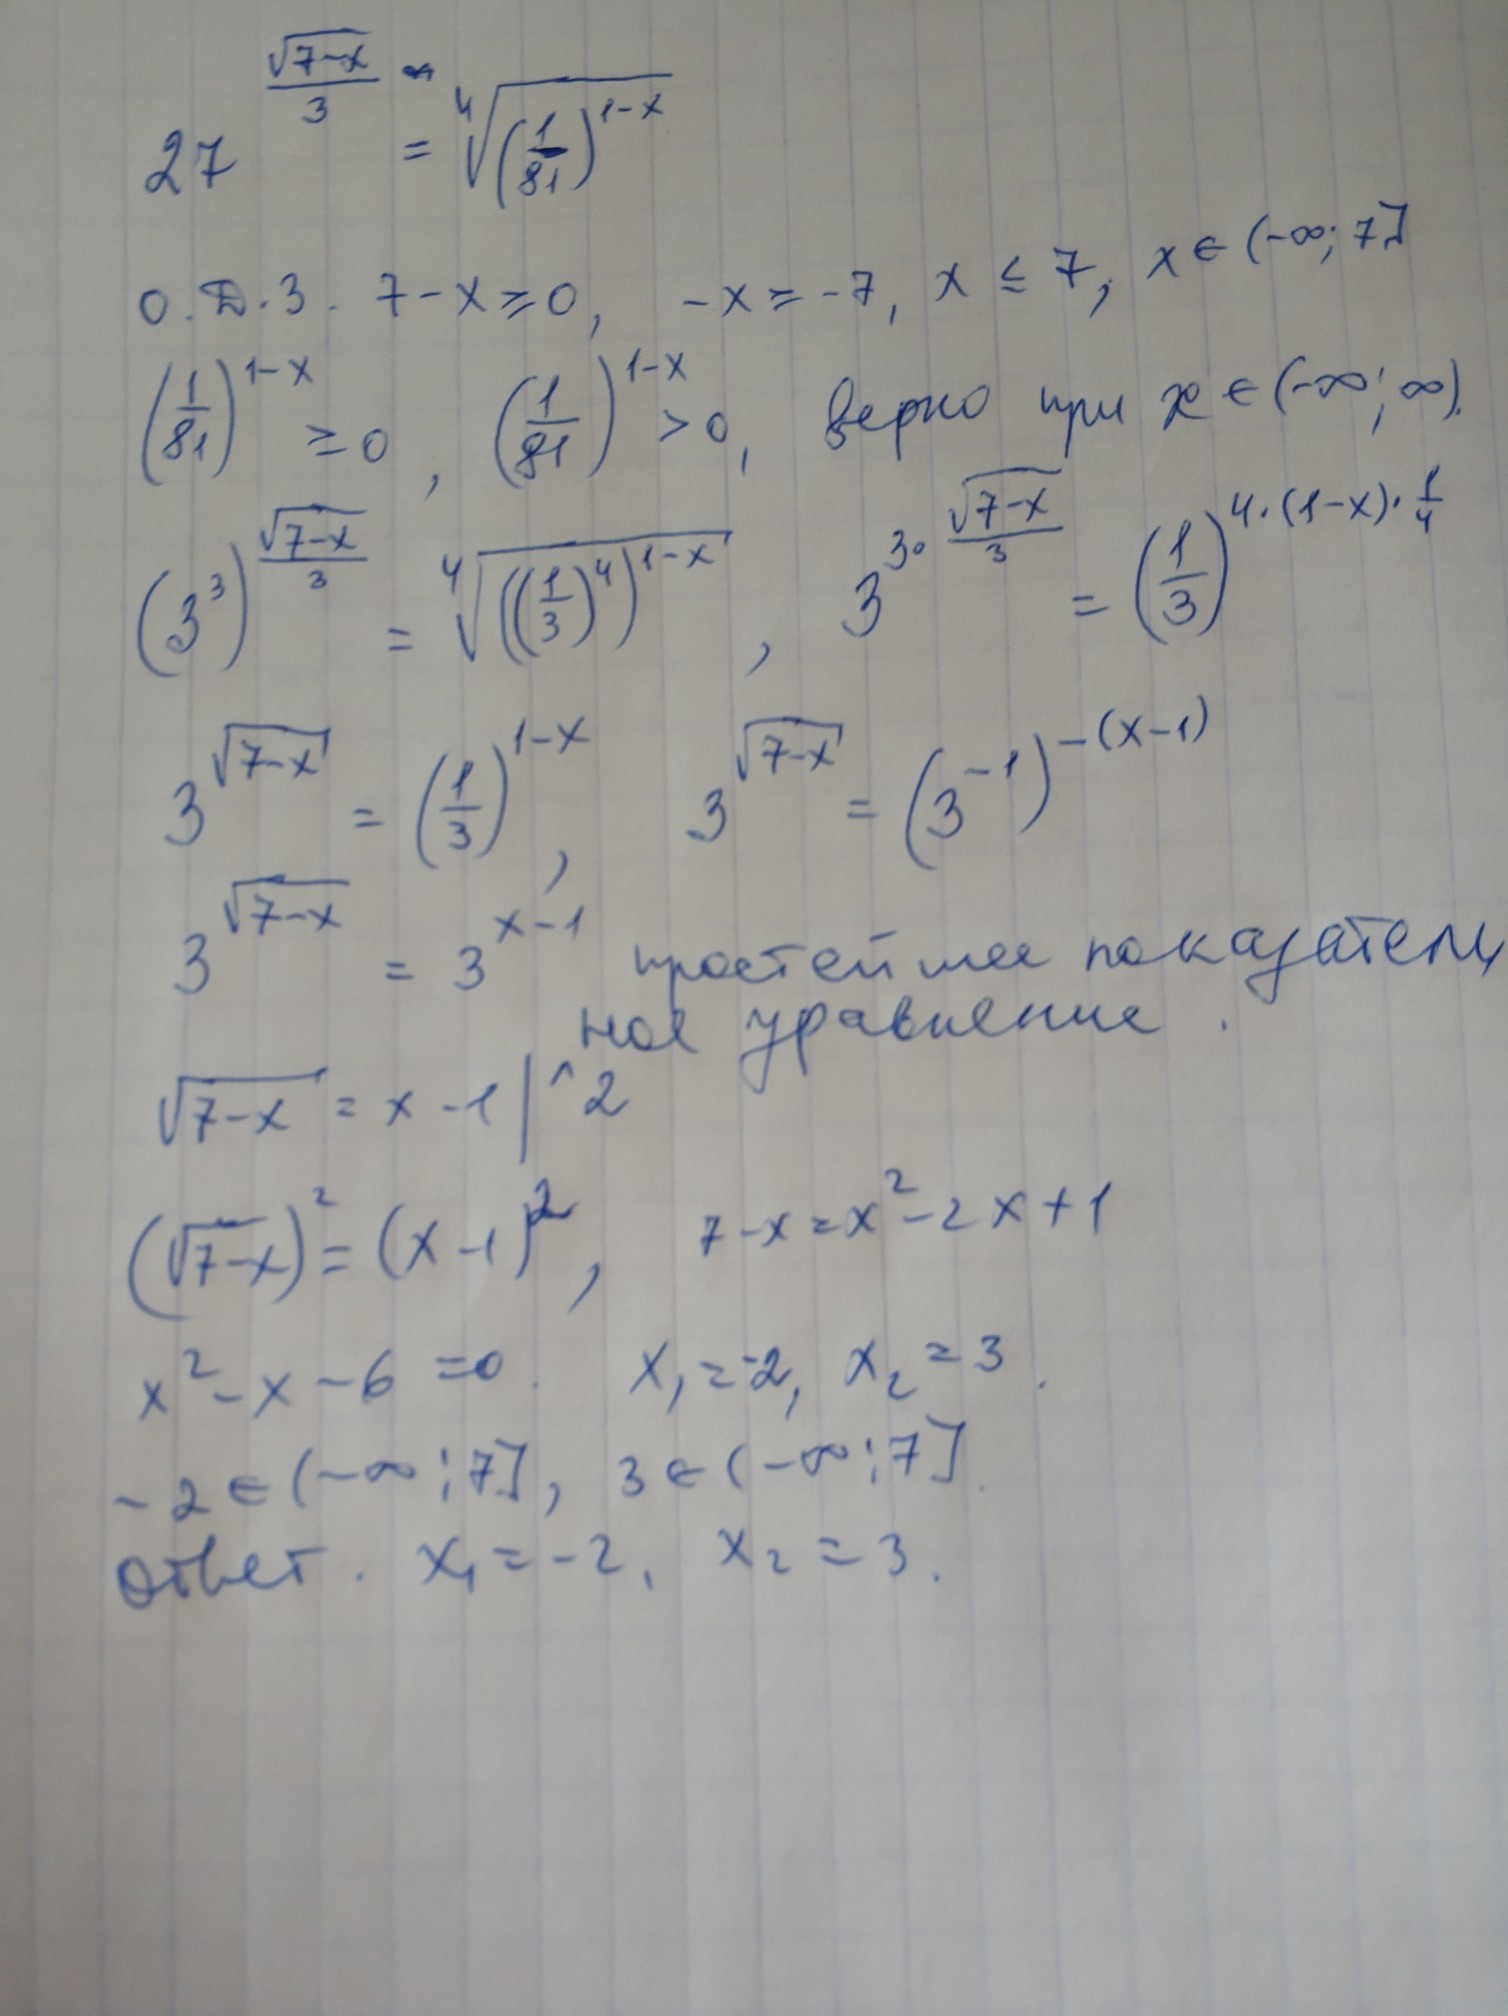 27^(√(7-x)/3) = ⁴√((1/81)^(1-x))
О.Д.З. 7-x≥0, -x≥-7, x≤7, x∈(-∞;7]
(1/81)^(1-x) ≥0, (1/81)^(1-x) >0, верно при x∈(-∞;∞).
(3³)^(√(7-x)/3) = ⁴√(((1/3)⁴)^(1-x)), 3^(3·√(7-x)/3) = (1/3)^(4·(1-x)·1/4)
3^√(7-x) = (1/3)^(1-x), 3^√(7-x) = (3^(-1))^(-(x-1))
3^√(7-x) = 3^(x-1) простейшее показатель
ное уравнение.
√(7-x) = x-1 |^2
(√(7-x))² = (x-1)², 7-x=x²-2x+1
x²-x-6=0. x₁=-2, x₂=3.
-2∈(-∞;7], 3∈(-∞;7].
Ответ. x₁=-2, x₂=3.